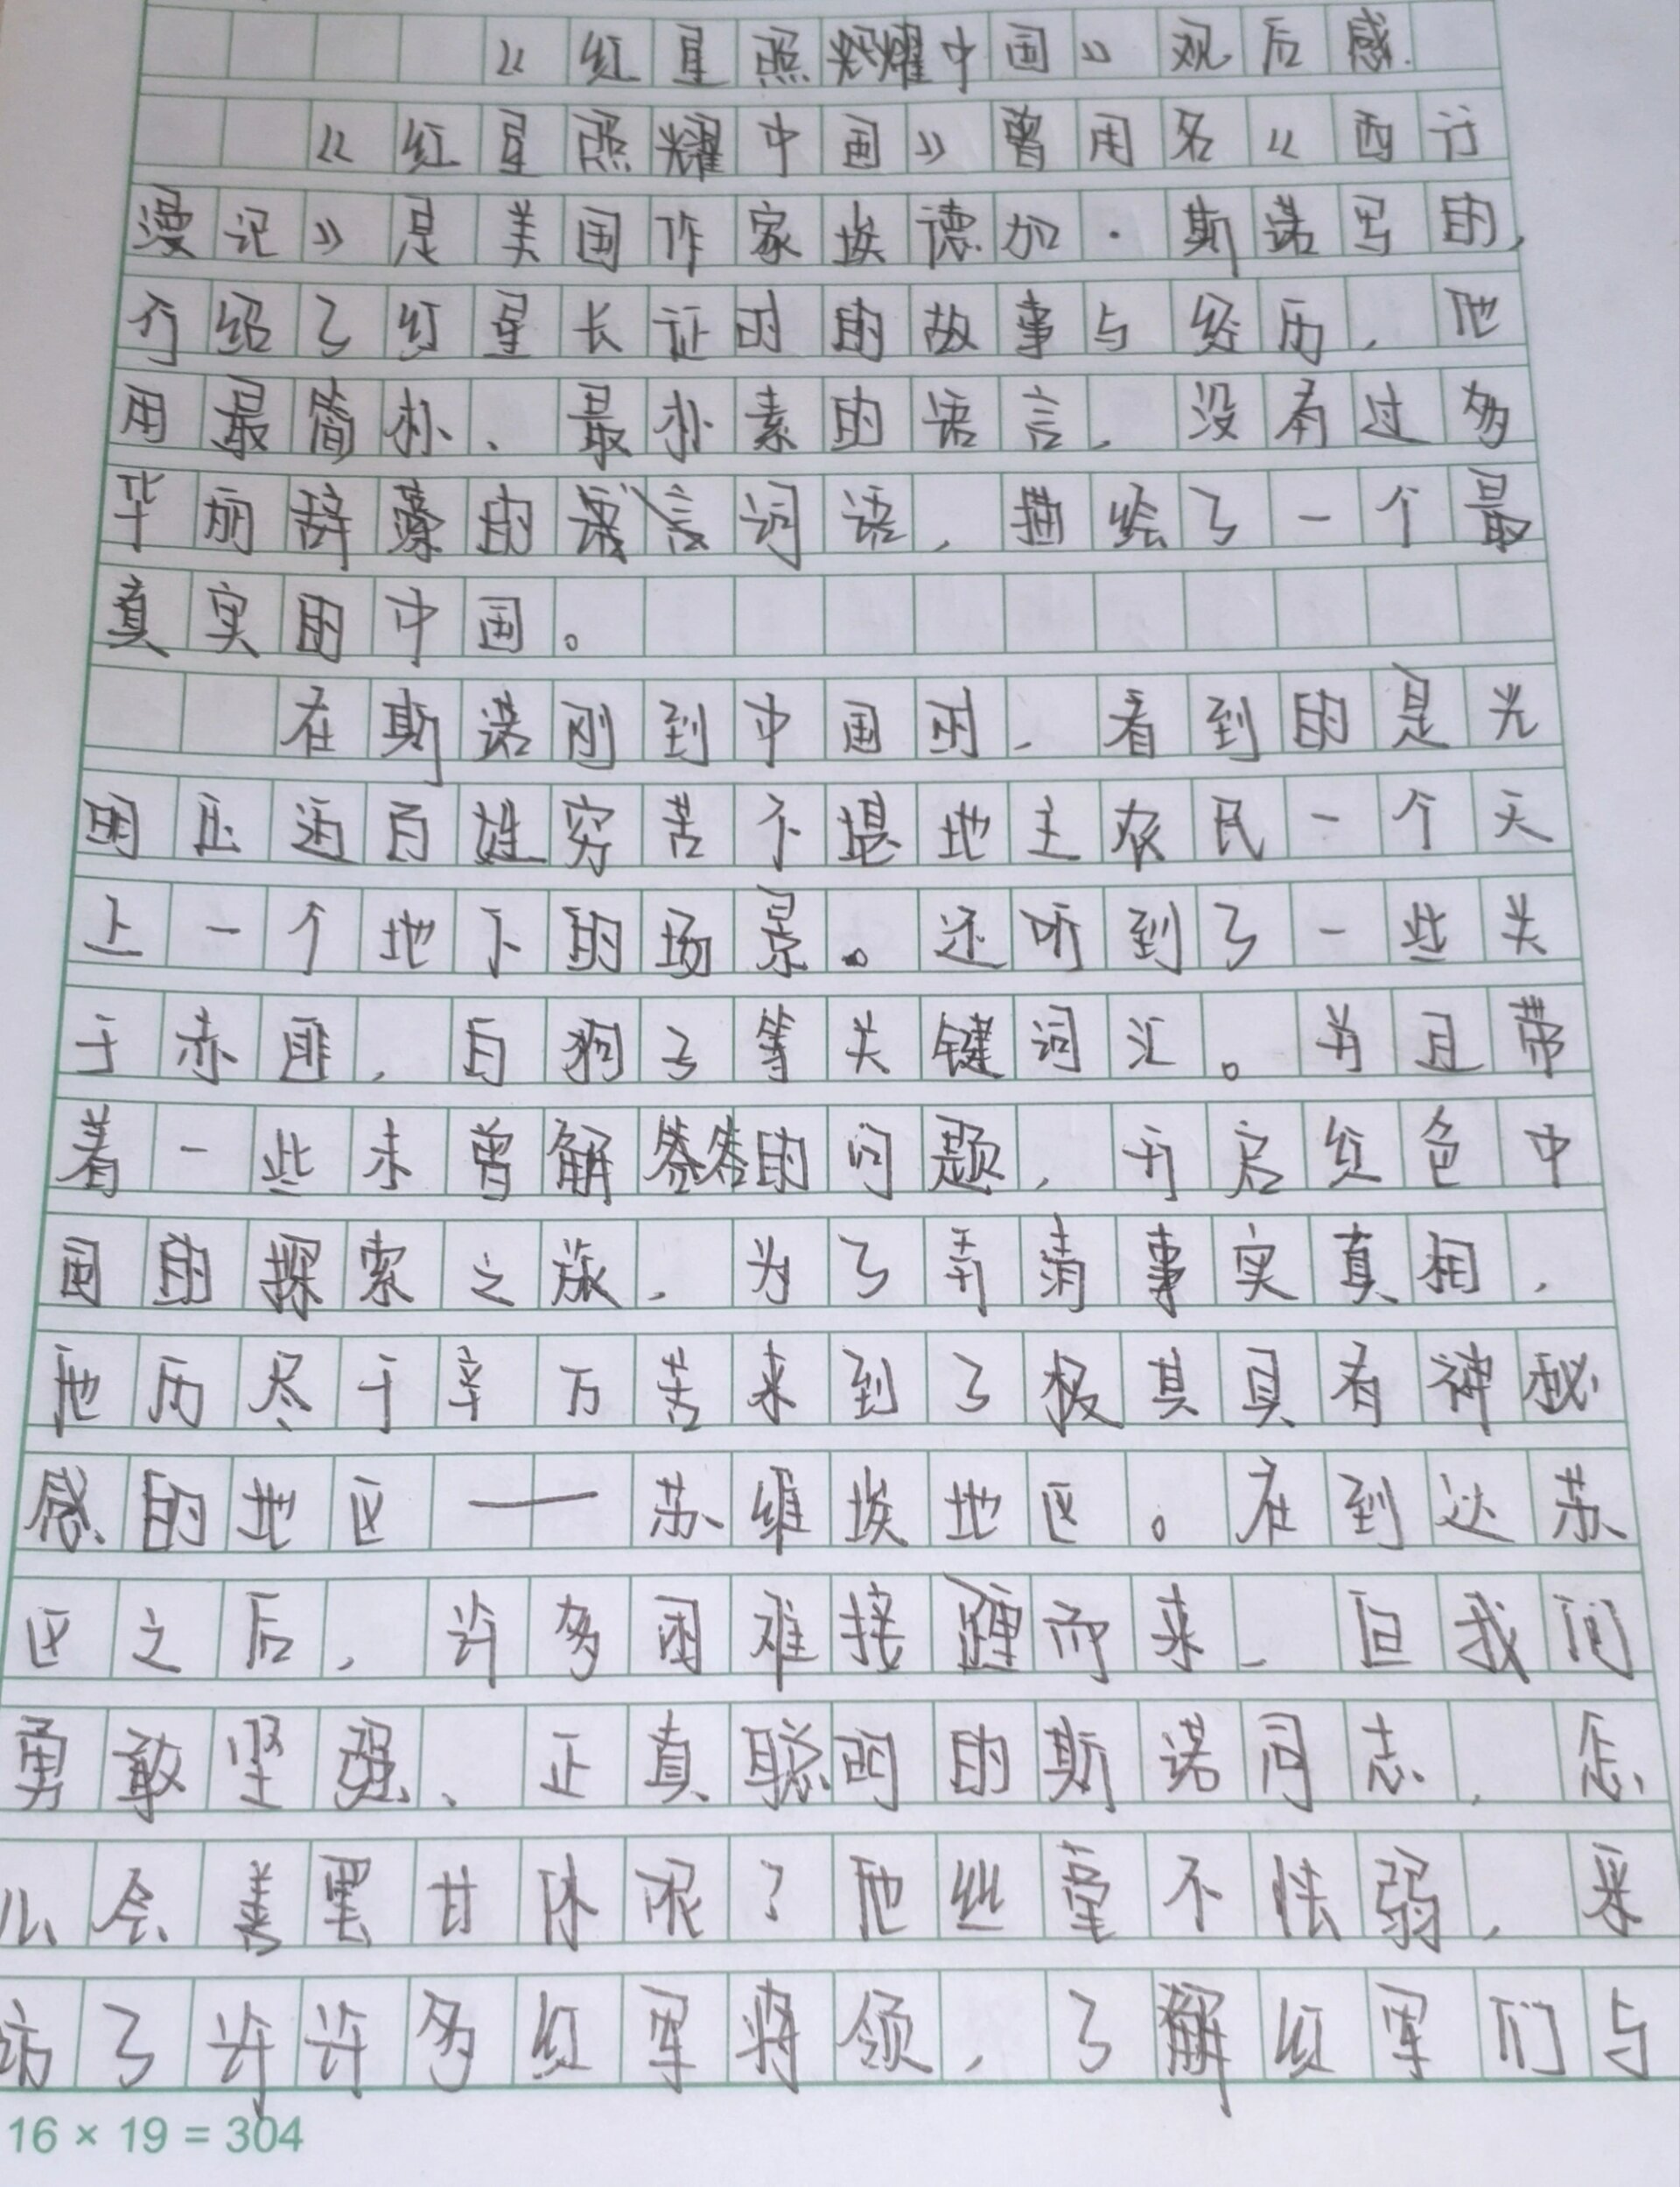 《红星照耀中国》观后感
《红星照耀中国》曾用名《西行
漫记》是美国作家埃德加·斯诺写的,
介绍了红星长征时的故事与经历,他
用最简朴、最朴素的语言,没有过多
华丽辞藻的词语,描绘了一个最
真实的中国。
在斯诺刚到中国时,看到的是光
明压迫百姓穷苦不堪地主农民一个天
上一个地下的场景。还听到了一些关
于赤匪,白狗子等关键词汇。并且带
着一些未曾解答的问题,开启红色中
国的探索之旅,为了弄清事实真相,
他历尽千辛万苦来到了极其具有神秘
感的地区——苏维埃地区。在到达苏
区之后,许多困难接踵而来,但我们
勇敢坚强、正真聪明的斯诺同志,怎
么会善罢甘休呢?他丝毫不怯弱,采
访了许许多红军将领,了解红军们与
16 × 19 = 304